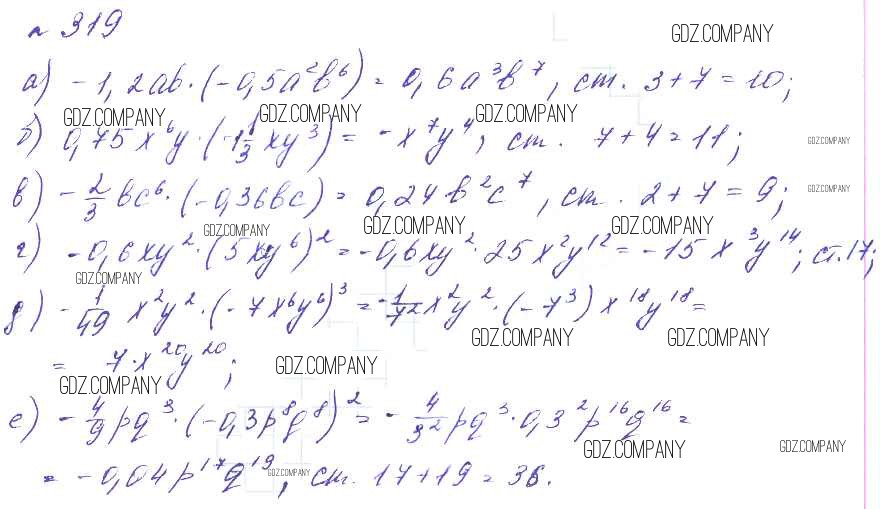 № 319
GDZ.COMPANY
а) -1,2ab·(-0,5a²b⁶) = 0,6a³b⁷, ст. 3+7=10;
GDZ.COMPANY GDZ.COMPANY GDZ.COMPANY
б) 0,75x⁶y·(-1 1/3 xy³) = -x⁷y⁴, ст. 7+4=11; GDZ.COMPANY
в) -2/3 bc⁶·(-0,36bc) = 0,24b²c⁷, ст. 2+7=9; GDZ.COMPANY
GDZ.COMPANY GDZ.COMPANY GDZ.COMPANY
г) -0,6xy²·(5xy⁶)² = -0,6xy²·25x²y¹² = -15x³y¹⁴; ст.17;
GDZ.COMPANY
д) -1/49 x²y²·(-7x⁶y⁶)³ = -1/7² x²y²·(-7³)x¹⁸y¹⁸ =
GDZ.COMPANY GDZ.COMPANY
= 7·x²⁰y²⁰;
GDZ.COMPANY GDZ.COMPANY
е) -4/9 pq³·(-0,3p⁸q⁸)² = -4/3² pq³·0,3²p¹⁶q¹⁶ =
GDZ.COMPANY GDZ.COMPANY
= -0,04p¹⁷q¹⁹, ст. 17+19=36.
GDZ.COMPANY